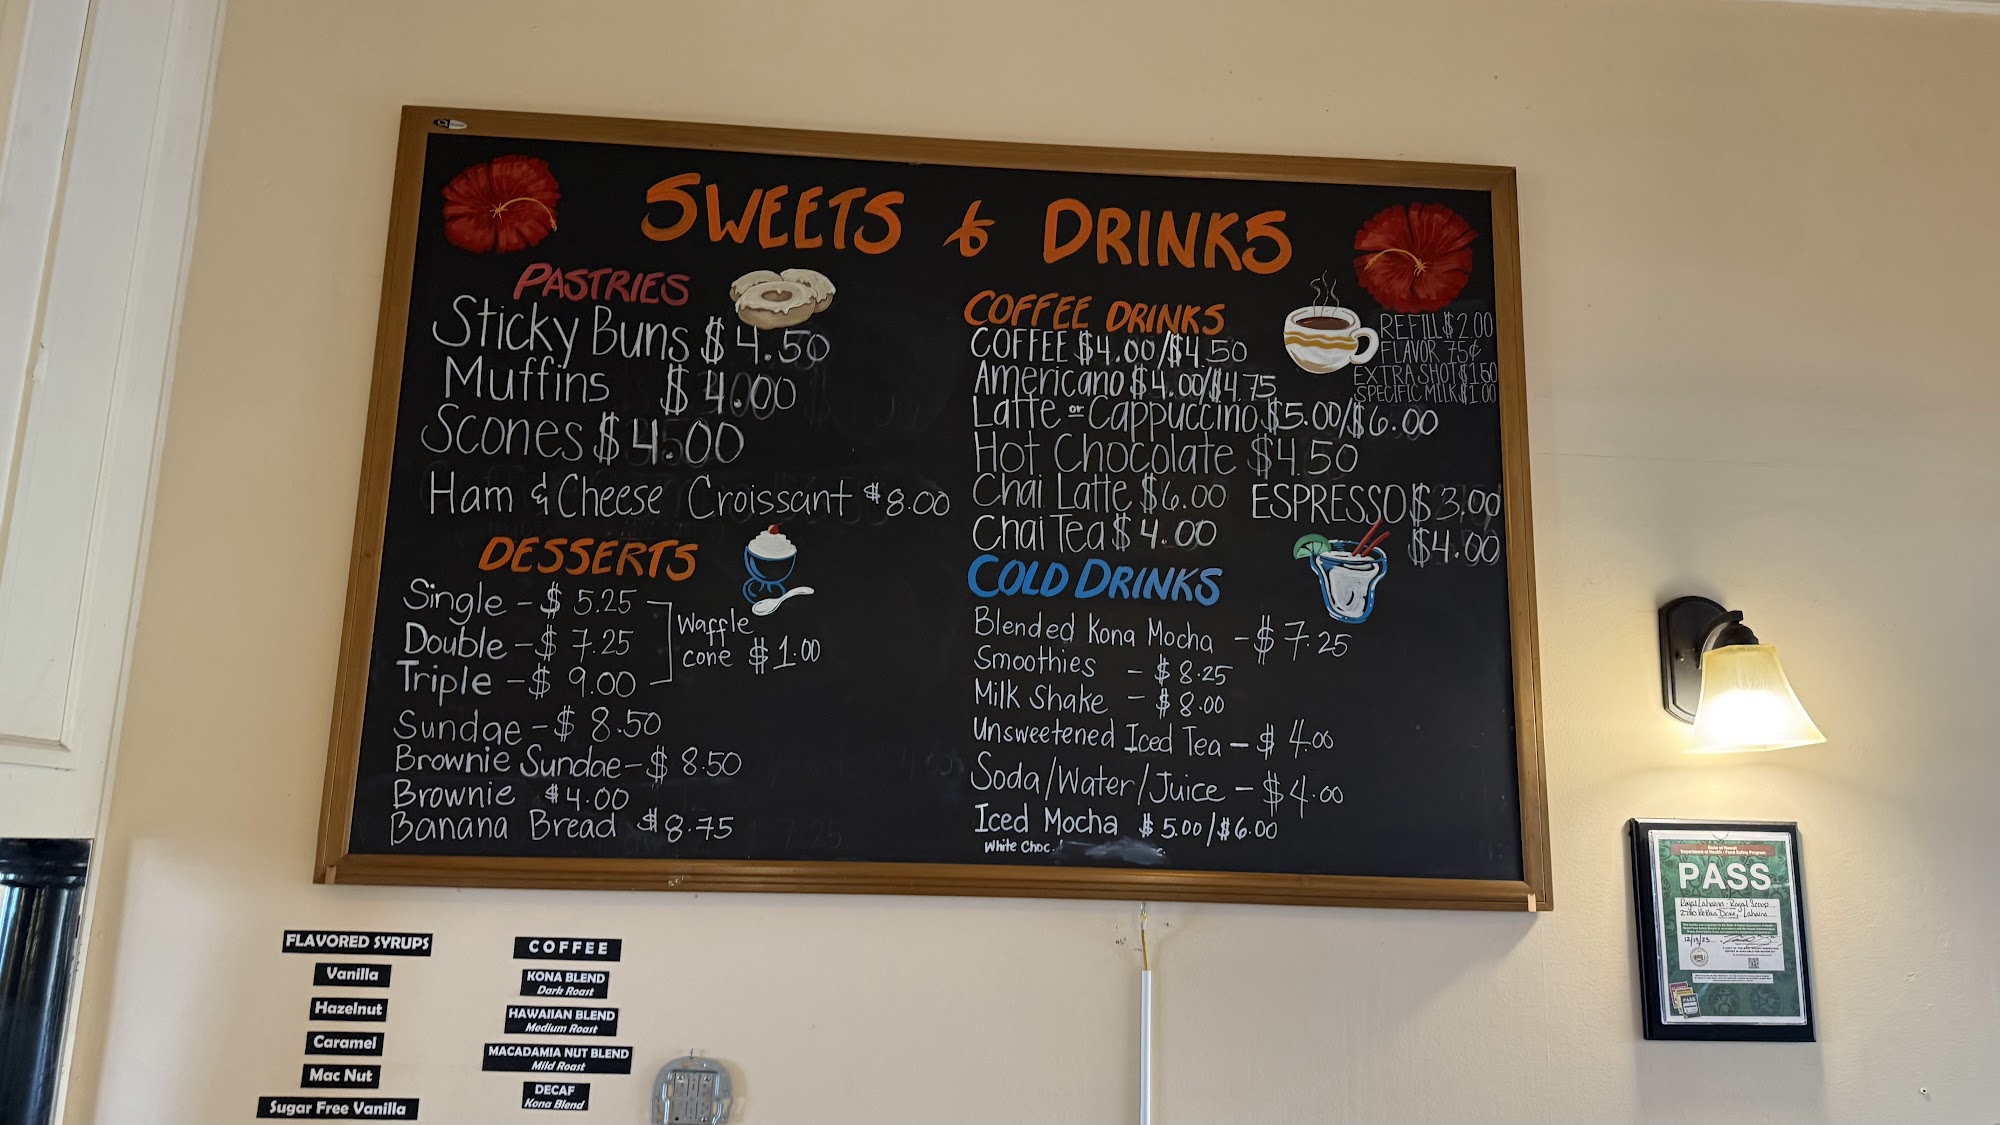 SWEETS & DRINKS
PASTRIES
Sticky Buns $4.50
Muffins $4.00
Scones $4.00
Ham & Cheese Croissant $8.00
DESSERTS
Single - $5.25
Double - $7.25
Triple - $9.00
Waffle
cone $1.00
Sundae - $8.50
Brownie Sundae - $8.50
Brownie $4.00
Banana Bread $8.75
COFFEE DRINKS
COFFEE $4.00/$4.50
Americano $4.00/$4.75
Latte or Cappuccino $5.00/$6.00
Hot Chocolate $4.50
Chai Latte $6.00
Chai Tea $4.00
REFILL $2.00
FLAVOR 75¢
EXTRA SHOT $1.50
SPECIFIC MILK $1.00
ESPRESSO $3.00
$4.00
COLD DRINKS
Blended Kona Mocha - $7.25
Smoothies - $8.25
Milk Shake - $8.00
Unsweetened Iced Tea - $4.00
Soda/Water/Juice - $4.00
Iced Mocha $5.00/$6.00
White Choc.
FLAVORED SYRUPS
Vanilla
Hazelnut
Caramel
Mac Nut
Sugar Free Vanilla
COFFEE
KONA BLEND
Dark Roast
HAWAIIAN BLEND
Medium Roast
MACADAMIA NUT BLEND
Mild Roast
DECAF
Kona Blend
State of Hawaii
Department of Health - Food Safety Program
PASS
Royal Lahaina - Royal Scoop
Lahaina
12/19/23